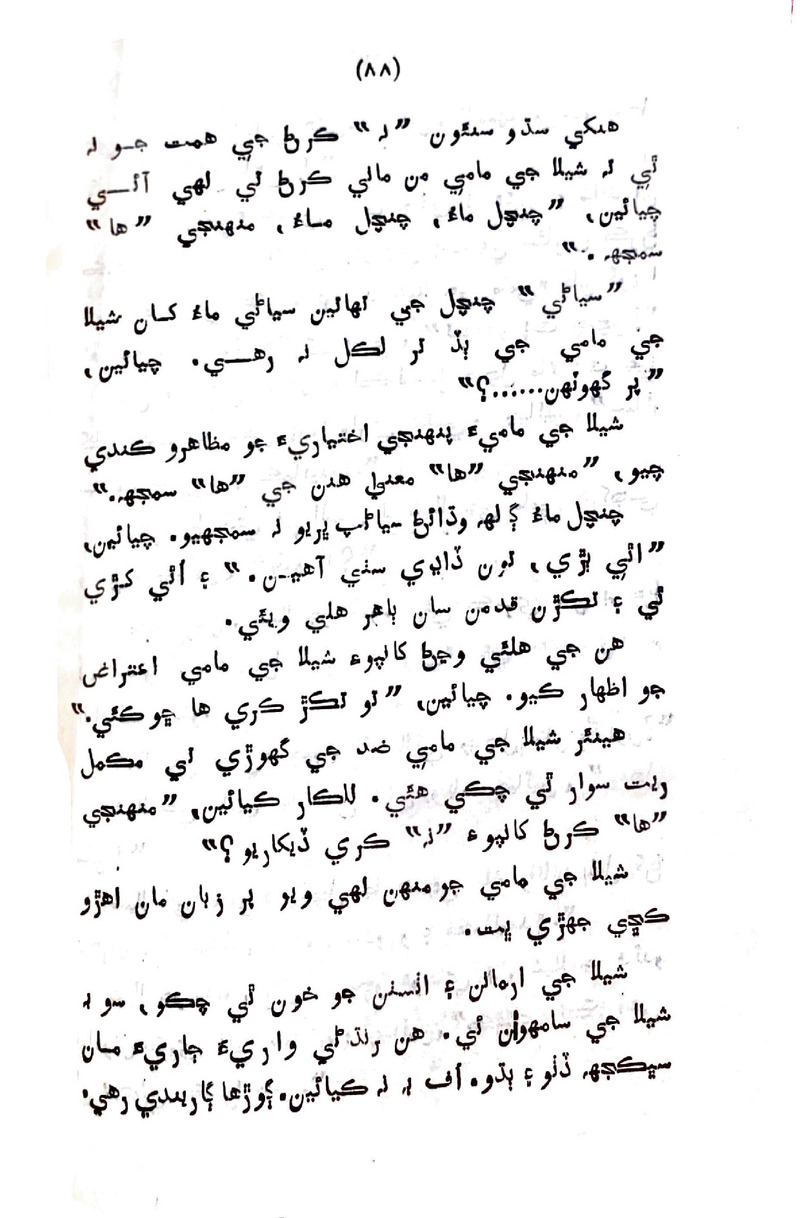 (٨٨)
هنکي سڌو سنئون ”نہ“ ڪرڻ جي همت جو نہ
ٿي تہ شيلا جي مامي من ماني ڪرڻ تي لهي آئي
چيائين، ”چنچل ماءُ، چنچل ماءُ، منهنجي ”ها“
سمجهہ.“
”سياڻي“ چنچل جي ٺهائين سياڻي ماءُ کان شيلا
جي مامي جي ٻڏ تر لڪل نہ رهي. چيائين،
”پر گهوٽهن......؟“
شيلا جي ماميءَ پنهنجي اختياريءَ جو مظاهرو ڪندي
چيو، ”منهنجي ”ها“ معنيٰ هنن جي ”ها“ سمجهہ.“
چنچل ماءُ ڳالهہ وڌائڻ سياڻپ ڀريو نہ سمجهيو. چيائين،
”ائي ٻڙي، تون ڏاڍي سٺي آهين.“ ۽ اُٿي کڙي
ٿي ۽ تڪڙن قدمن سان ٻاهر هلي ويئي.
هن جي هلئي وڃڻ کانپوءِ شيلا جي مامي اعتراض
جو اظهار ڪيو. چيائين، ”تو تڪڙ ڪري ها ڇو ڪئي.“
هينئر شيلا جي مامي ضد جي گهوڙي تي مڪمل
ريت سوار ٿي چڪي هئي. للڪار ڪيائين، ”منهنجي
”ها“ ڪرڻ کانپوءِ ”نہ“ ڪري ڏيکاريو؟“
شيلا جي مامي جو منهن لهي ويو پر زبان مان اهڙو
ڪڇي جهڙي ڀت.
شيلا جي ارمانن ۽ اُنسنن جو خون ٿي چڪو، سو بہ
شيلا جي سامهوان ئي. هن رنڌڻي واريءَ ڄاريءَ مان
سڀڪجهہ ڏٺو ۽ ٻڌو. اُف بہ نہ ڪيائين. ڳوڙها ڳاريندي رهي.